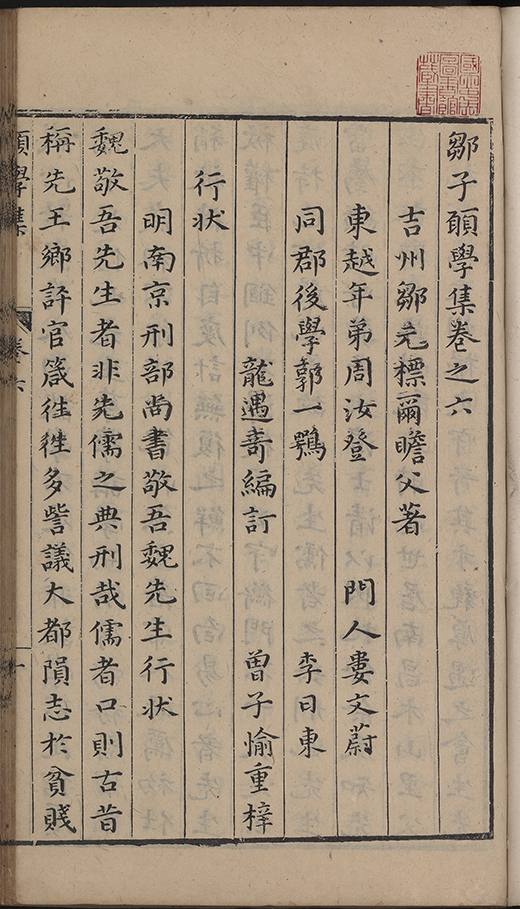 鄒子願學集卷之六
吉州鄒元標爾瞻父著
東越年弟周汝登 門人婁文蔚
同郡後學郭一鶚 李日東
龍遇奇編訂 曾子愉重梓
行狀
明南京刑部尚書敬吾魏先生行狀
魏敬吾先生者非先儒之典刑哉儒者口則古昔
稱先王鄉評官箴徃徃多訾議大都隕志於貧賤
願學集 卷六 一